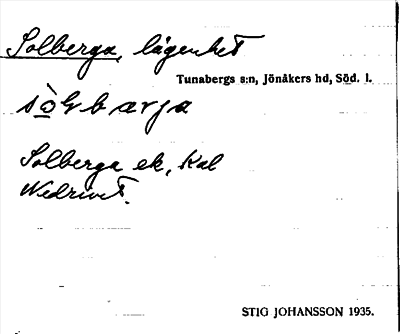 Solberga, lägenhet
Tunabergs s:n, Jönåkers hd, Söd. l.
sòlbarja
Solberga ek, Kal
Nedrivet.
STIG JOHANSSON 1935.